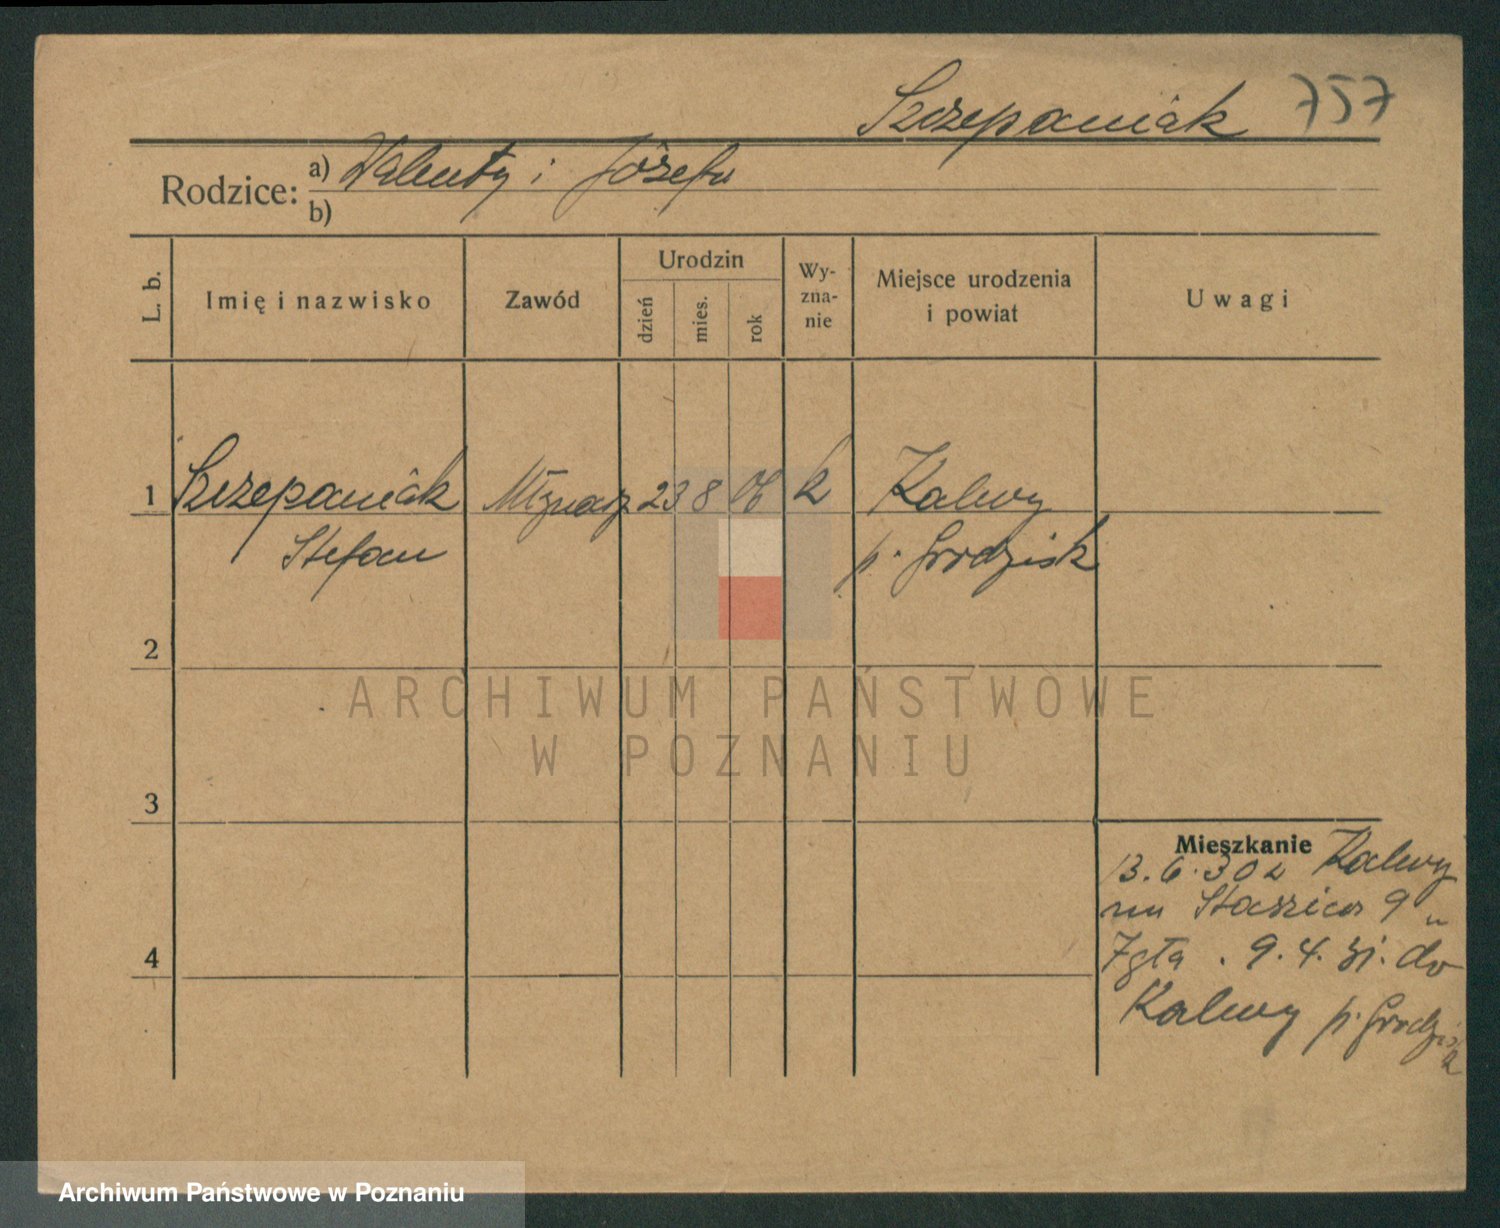 Szczepaniak 757
Rodzice: a) Walenty i Józefa
b)
L. b.
Imię i nazwisko
Zawód
Urodzin
dzień
mies.
rok
Wy-
zna-
nie
Miejsce urodzenia
i powiat
Uwagi
1 Szczepaniak Młynarz 23 8 06 k Kalwy
Stefan p. Grodzisk
2
ARCHIWUM PAŃSTWOWE
W POZNANIU
3
Mieszkanie Kalwy
13.6.30 z
na Staszica 9
4
Zgła. 9.4.31. do
Kalwy p. Grodzisk
Archiwum Państwowe w Poznaniu